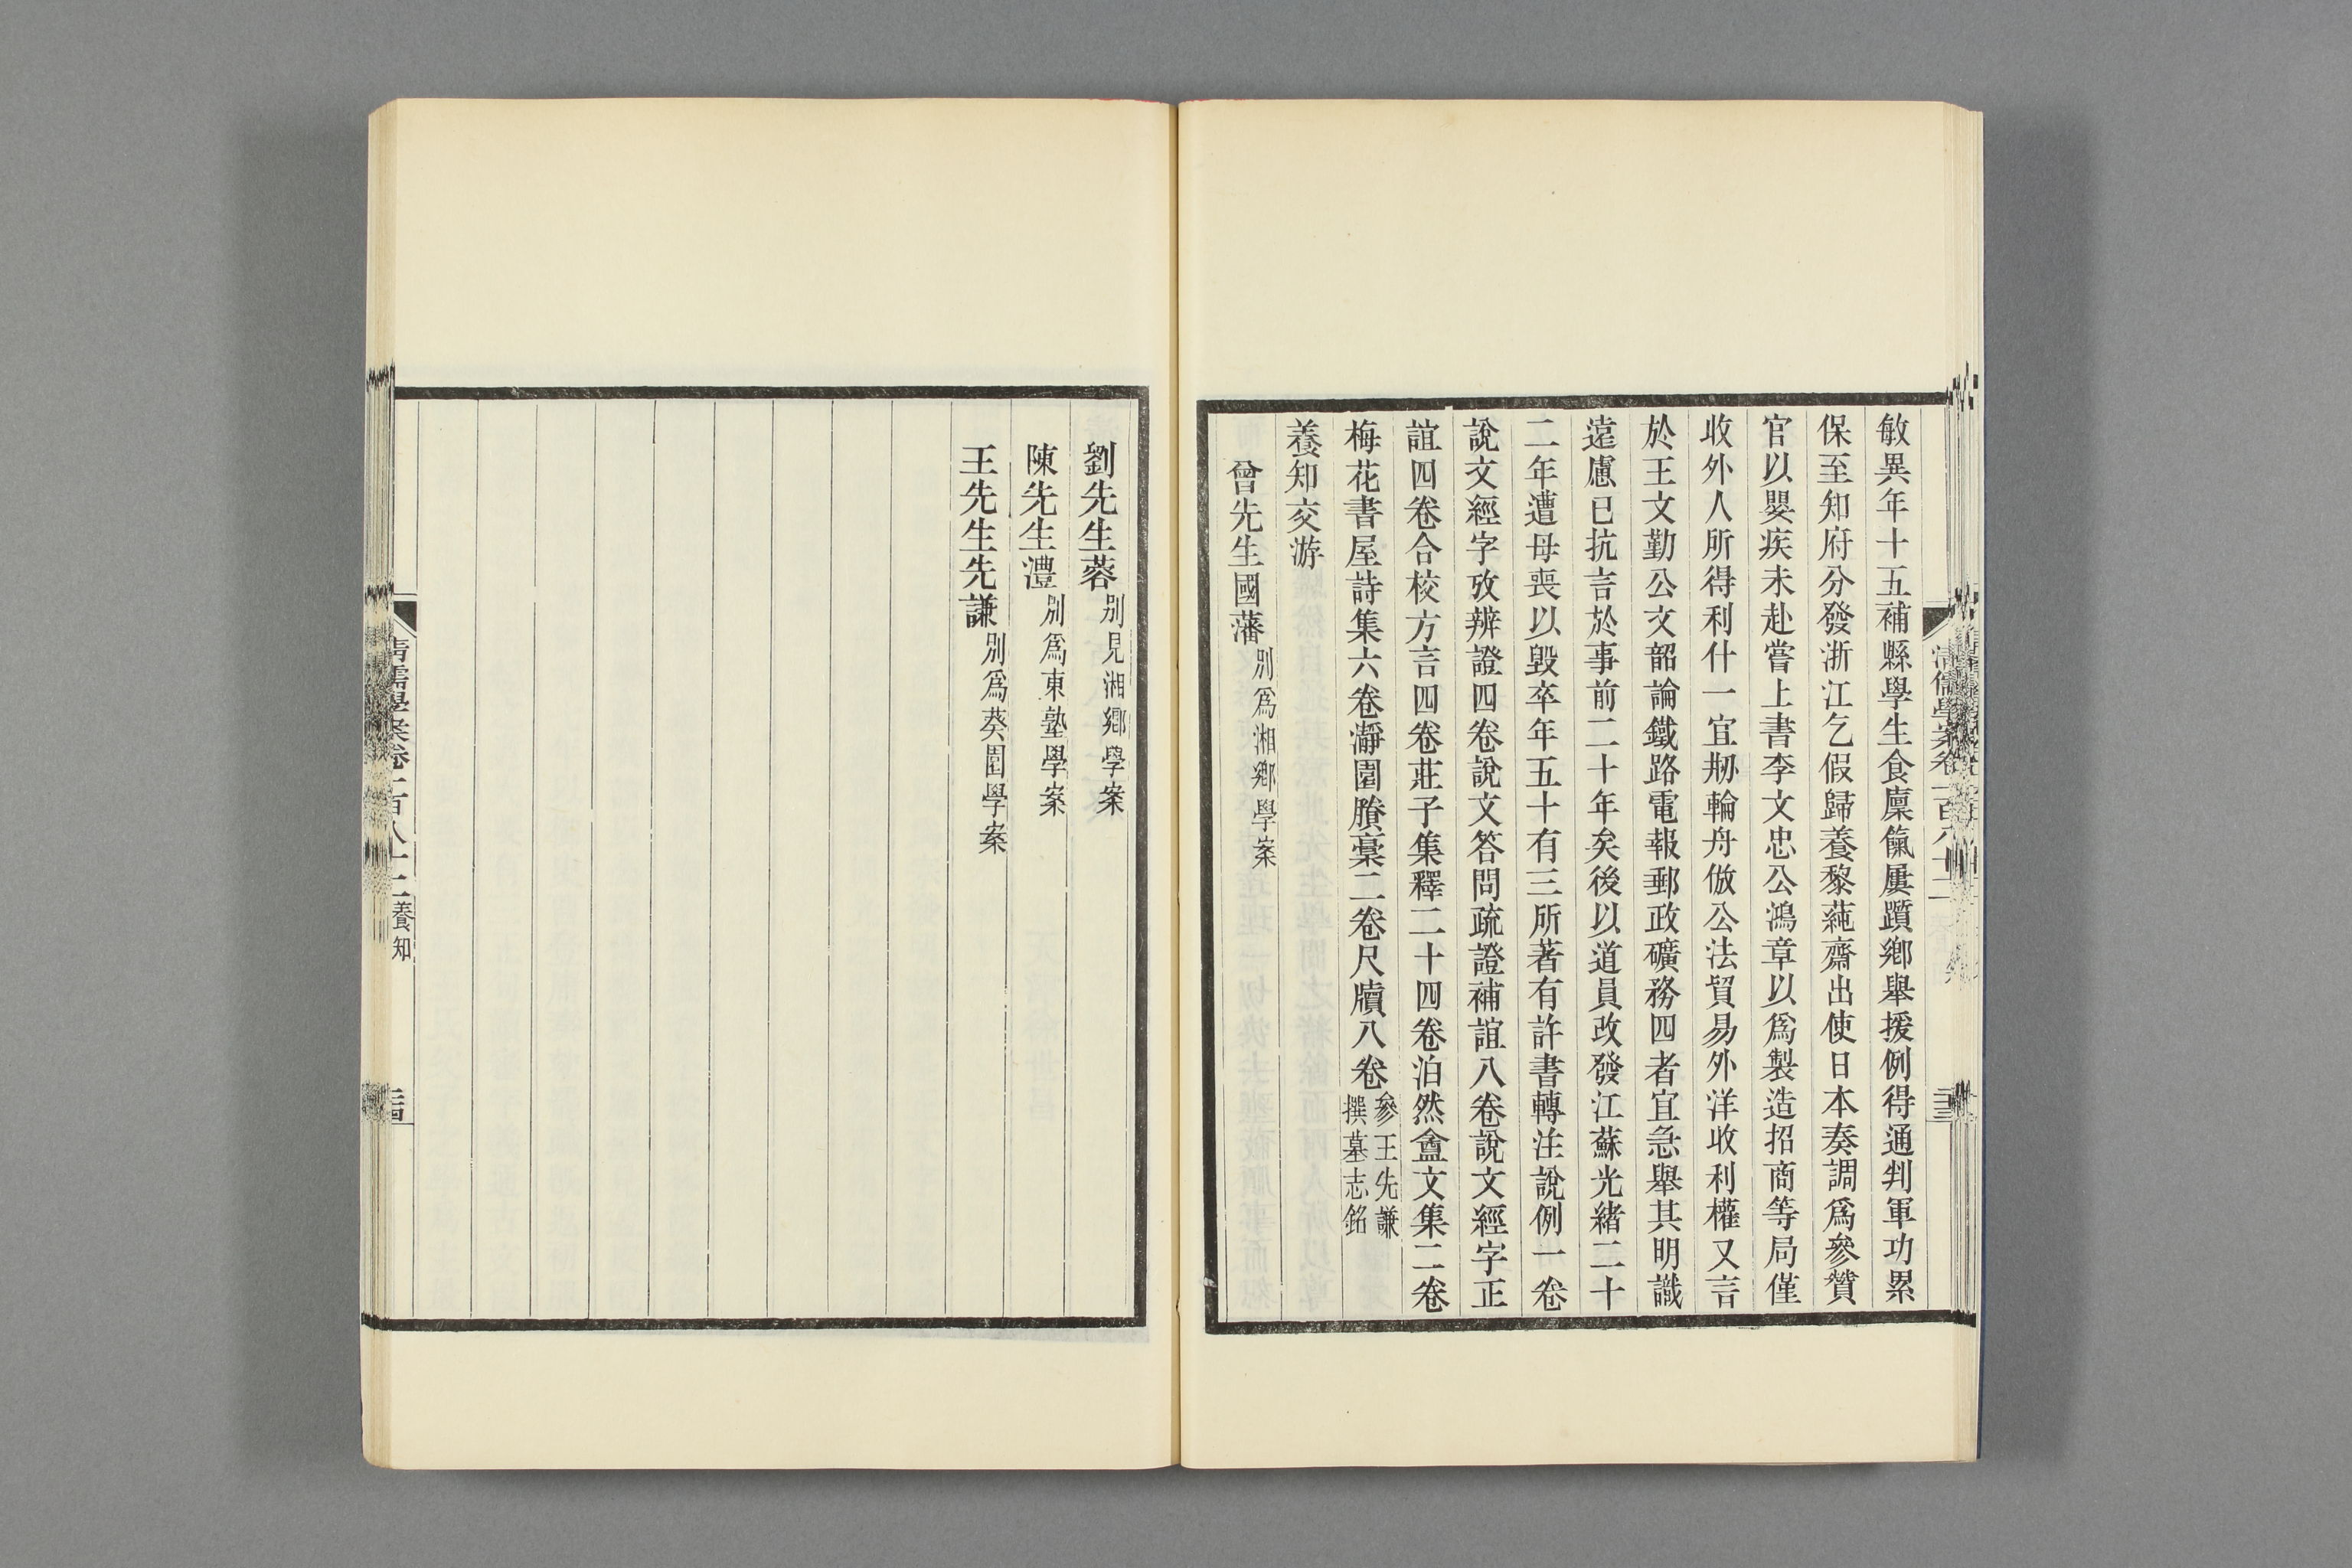 敏異年十五補縣學生食廩餼屢躓鄉舉援例得通判軍功累
保至知府分發浙江乞假歸養黎蒓齋出使日本奏調爲參贊
官以嬰疾未赴嘗上書李文忠公鴻章以爲製造招商等局僅
收外人所得利什一宜刱輪舟倣公法貿易外洋收利權又言
於王文勤公文韶論鐵路電報郵政礦務四者宜急舉其明識
遠慮已抗言於事前二十年矣後以道員改發江蘇光緒二十
二年遭母喪以毀卒年五十有三所著有許書轉注說例一卷
說文經字攷辨證四卷說文答問疏證補誼八卷說文經字正
誼四卷合校方言四卷莊子集釋二十四卷泊然盦文集二卷
梅花書屋詩集六卷瀞園賸稾二卷尺牘八卷參王先謙撰墓志銘
養知交游
曾先生國藩別爲湘鄉學案
劉先生蓉別見湘鄉學案
陳先生澧別爲東塾學案
王先生先謙別爲葵園學案
清儒學案卷一百八十二 養知